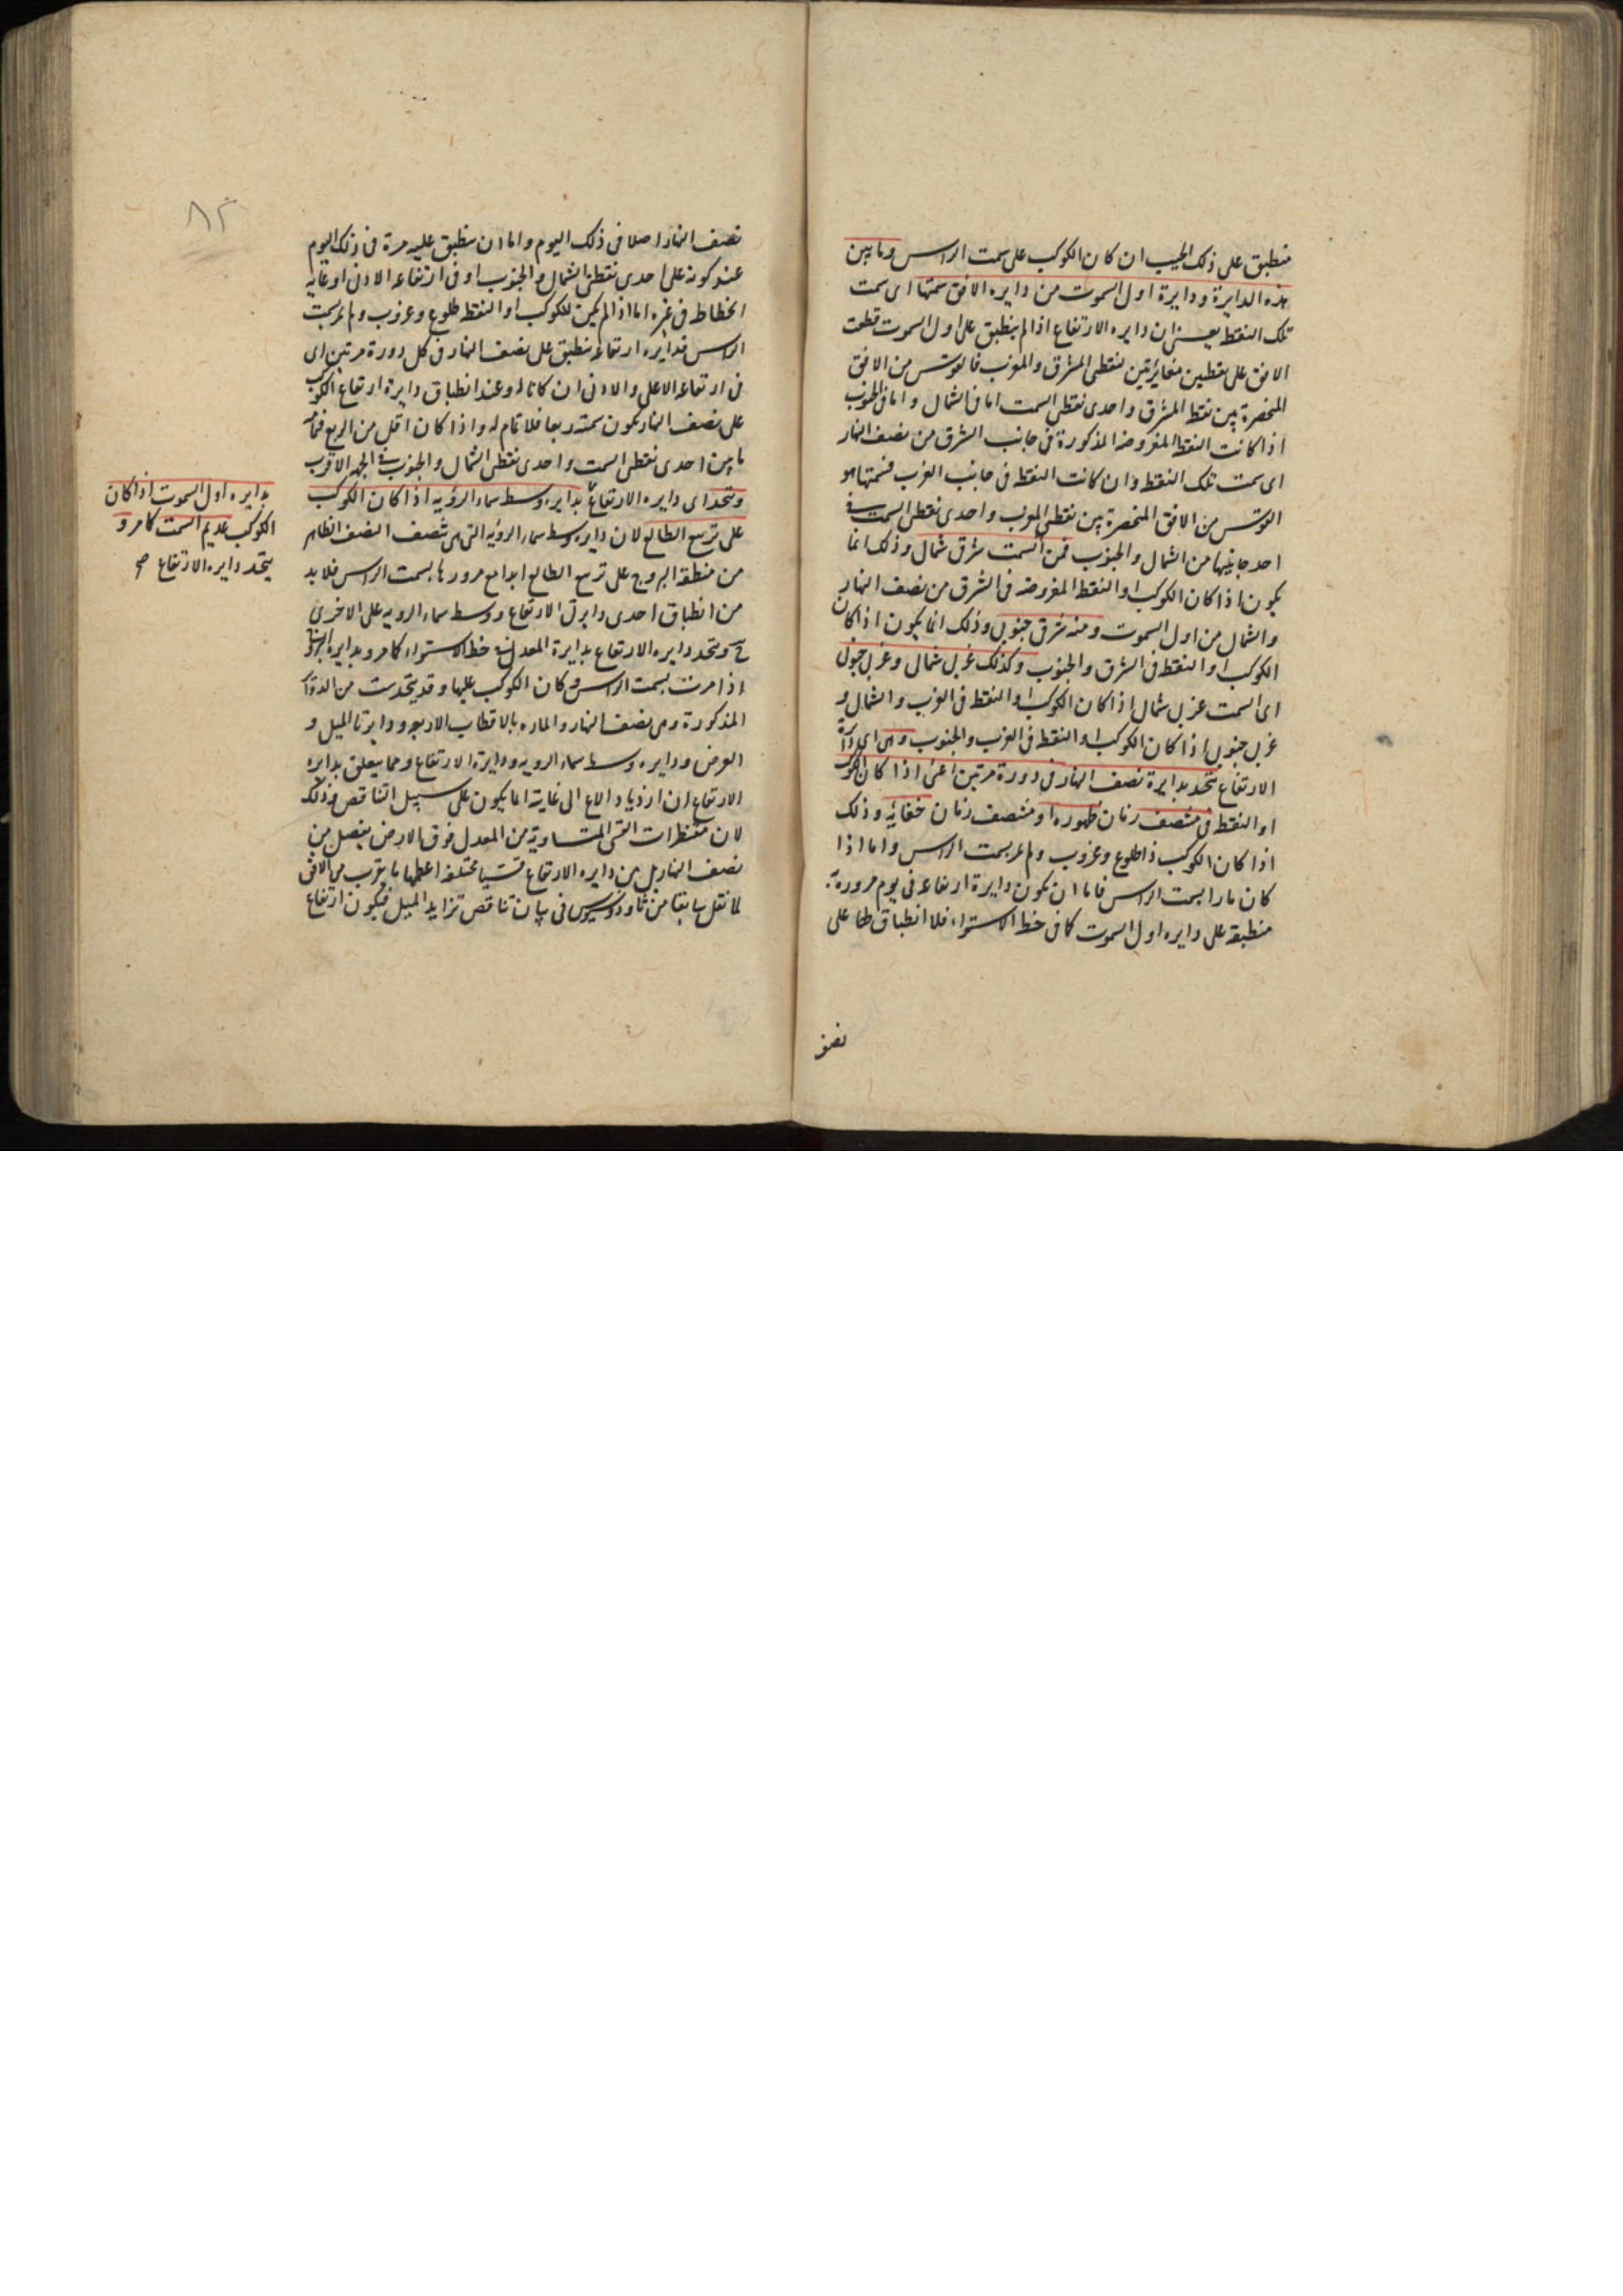 منطبق على ذلك الجيب ان كان الكوكب على سمت الراس وما بين
هذه الدايرة ودايرة اول السموت من دايره الافق سمتها اى سمت
تلك النقطه يعنى ان دايره الارتفاع اذا لم ينطبق على اول السموت قطعت
الافق على نقطتين مغايرتين لنقطتى المشرق والمغرب فالقوس من الافق
المنحصرة بين نقطه المشرق واحدى نقطتى السمت اما فى الشمال واما فى الجنوب
اذا كانت النقطه المفروضه المذكورة فى جانب الشرق من نصف النهار
اى سمت تلك النقطه وان كانت النقطه فى جانب الغرب فسمتها هو
القوس من الافق المنحصرة بين نقطتى المغرب واحدى نقطتى السمت فى
احد جانبيها من الشمال والجنوب فمن السمت شرقى شمالى وذلك انما
يكون اذا كان الكوكب او النقطه المفروضه فى الشرق من نصف النهار
والشمال من اول السموت ومنه شرقى جنوبى وذلك انما يكون اذا كان
الكوكب او النقطه فى الشرق والجنوب وكذلك غربى شمالى وغربى جنوبى
اى السمت غربى شمالى اذا كان الكوكب او النقطه فى الغرب والشمال و
غربى جنوبى اذا كان الكوكب او النقطه فى الغرب والجنوب وهى اى دائرة
الارتفاع تتحد بدايرة نصف النهار فى دورة مرتين اعنى اذا كان الكوكب
او النقطه فى منتصف زمان ظهوره او منتصف زمان خفائه وذلك
اذا كان الكوكب ذا طلوع وغروب ولم يمر بسمت الراس واما اذا
كان مارا بسمت الراس فاما ان يكون دايرة ارتفاعه فى يوم مروره به
منطبقه على دايره اول السموت كما فى خط الاستواء فلا انطباق لها على
نصف
نصف النهار اصلا فى ذلك اليوم واما ان ينطبق عليه مرة فى ذلك اليوم
عند كونه على احدى نقطتى الشمال والجنوب او فى ارتفاعه الادنى او غاية
انحطاطه فى غيره اما اذا لم يكن للكوكب او النقطه طلوع وغروب ولم يمر بسمت
الراس فدايره ارتفاعه ينطبق على نصف النهار فى كل دورة مرتين اى
فى ارتفاعه الاعلى والادنى ان كانا له وعند انطباق دايرة ارتفاع الكوكب
على نصف النهار يكون سمته ربعا فلا تمام له واذا كان اقل من الربع فتمامه
ما بين احدى نقطتى السمت واحدى نقطتى الشمال والجنوب فى الجهه الاقرب
وتتحد اى دايره الارتفاع بدايره وسط سماء الرؤيه اذا كان الكوكب
على تربيع الطالع لان دايره وسط سماء الرؤيه التى هى تنصف النصف الظاهر
من منطقه البروج على تربيع الطالع ابدا مع مرورها بسمت الراس فلا بد
من انطباق احدى دايرتى الارتفاع ووسط سماء الرويه على الاخرى
ح وتتحد دايره الارتفاع بدايرة المعدل فى خط الاستواء كما مر وبدايره البروج
اذا مرت بسمت الراس وكان الكوكب عليها وقد يتحد ست من الدواير
المذكورة وهى نصف النهار والماره بالاقطاب الاربعه ودايرتا الميل و
العرض ودايره وسط سماء الرويه ودايرة الارتفاع ومما يتعلق بدايره
الارتفاع ان ازدياد الاع الى غايته انما يكون على سبيل التناقص وذلك
لان مقنطرات القسى المتساوية من المعدل فوق الارض يفصل من
نصف النهار بل من دايره الارتفاع قسيا مختلفه اعظمها ما يقرب من الافق
لما نقل سابقا من ثاوذوسيوس فى بيان تناقص تزايد الميل فيكون ارتفاع
بدايره اول السموت اذا كان
الكوكب عديم السمت كما مر و
يتحد دايره الارتفاع صح
٨٢